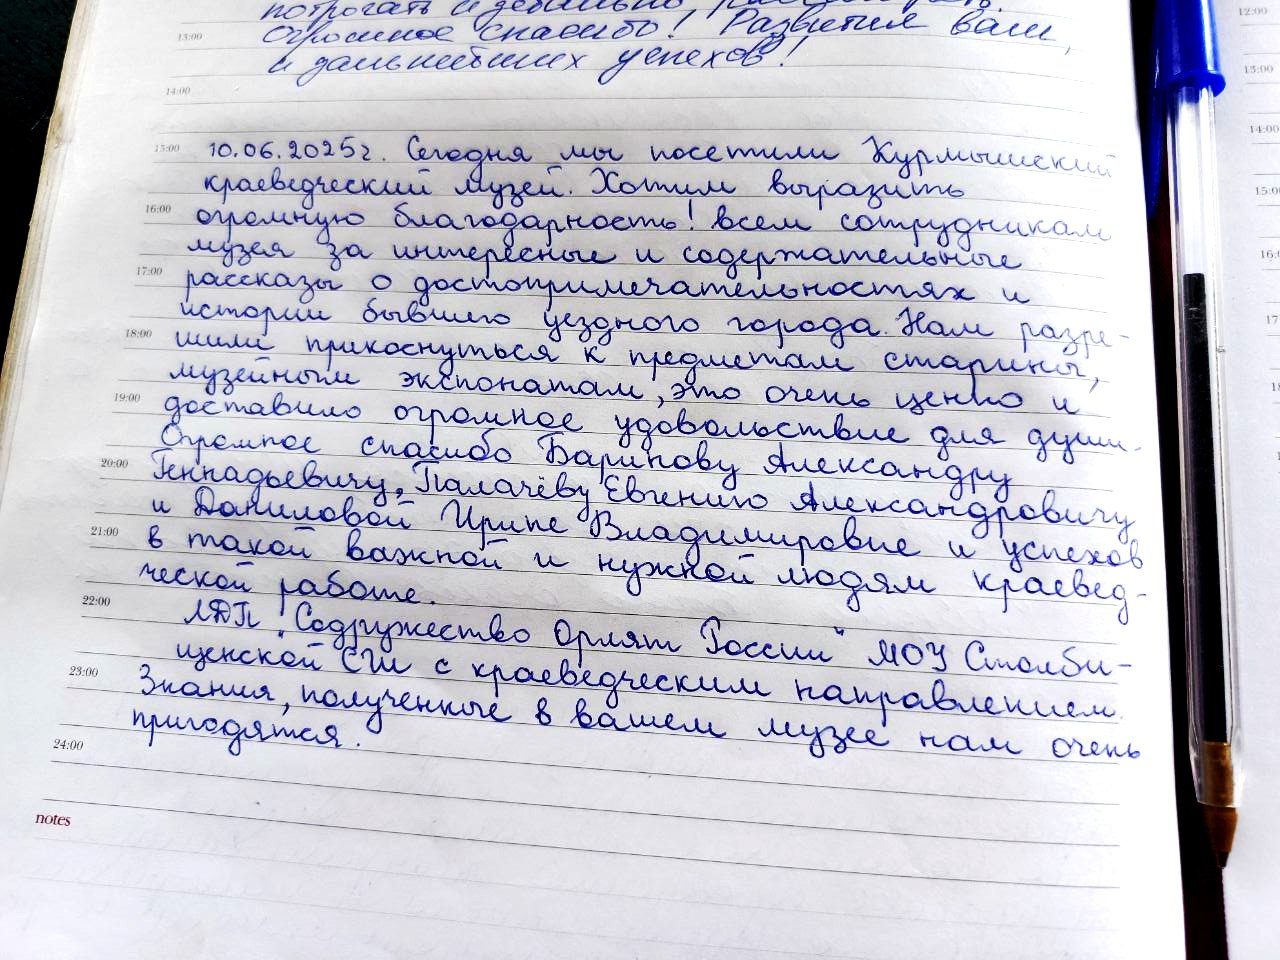 потрогать и детально
13:00 Огромное спасибо! Развития вам,
и дальнейших успехов!
14:00
15:00 10.06.2025г. Сегодня мы посетили Курмышский
краеведческий музей. Хотим выразить
16:00 огромную благодарность! всем сотрудникам
музея за интересные и содержательные
17:00 рассказы о достопримечательностях и
истории бывшего уездного города. Нам разре-
18:00 шили прикоснуться к предметам старины,
музейным экспонатам, это очень ценно и
19:00 доставило огромное удовольствие для души.
Огромное спасибо Барипову Александру
20:00 Геннадьевичу, Палачёву Евгению Александровичу
и Даниловой Ирине Владимировне и успехов
21:00 в такой важной и нужной людям краевед-
ческой работе.
22:00 ЛДП "Содружество Орлят России" МОУ Столби-
щенской СШ с краеведческим направлением.
23:00 Знания, полученные в вашем музее нам очень
пригодятся.
24:00
notes
12:00
13:00
14:00
15:00
16:0
17
18
1